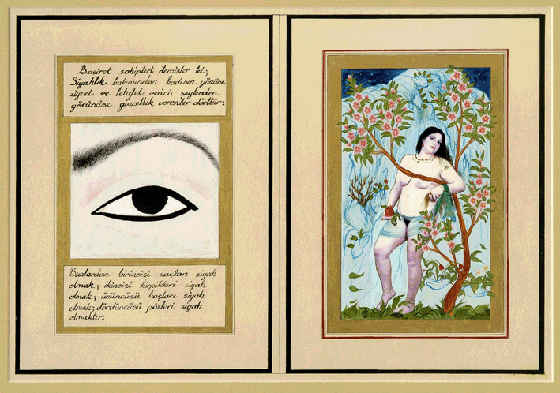 Basiret sahipleri demişler ki;
Siyahlık bakımından kadının yüzüne
ziynet ve letafet verici şeylerden
görünüşe güzellik verenler dörttür;
Bunlardan birincisi saçları siyah
olmak; ikincisi kirpikleri siyah
olmak; üçüncüsü kaşları siyah
olmak; dördüncüsü gözleri siyah
olmaktır.